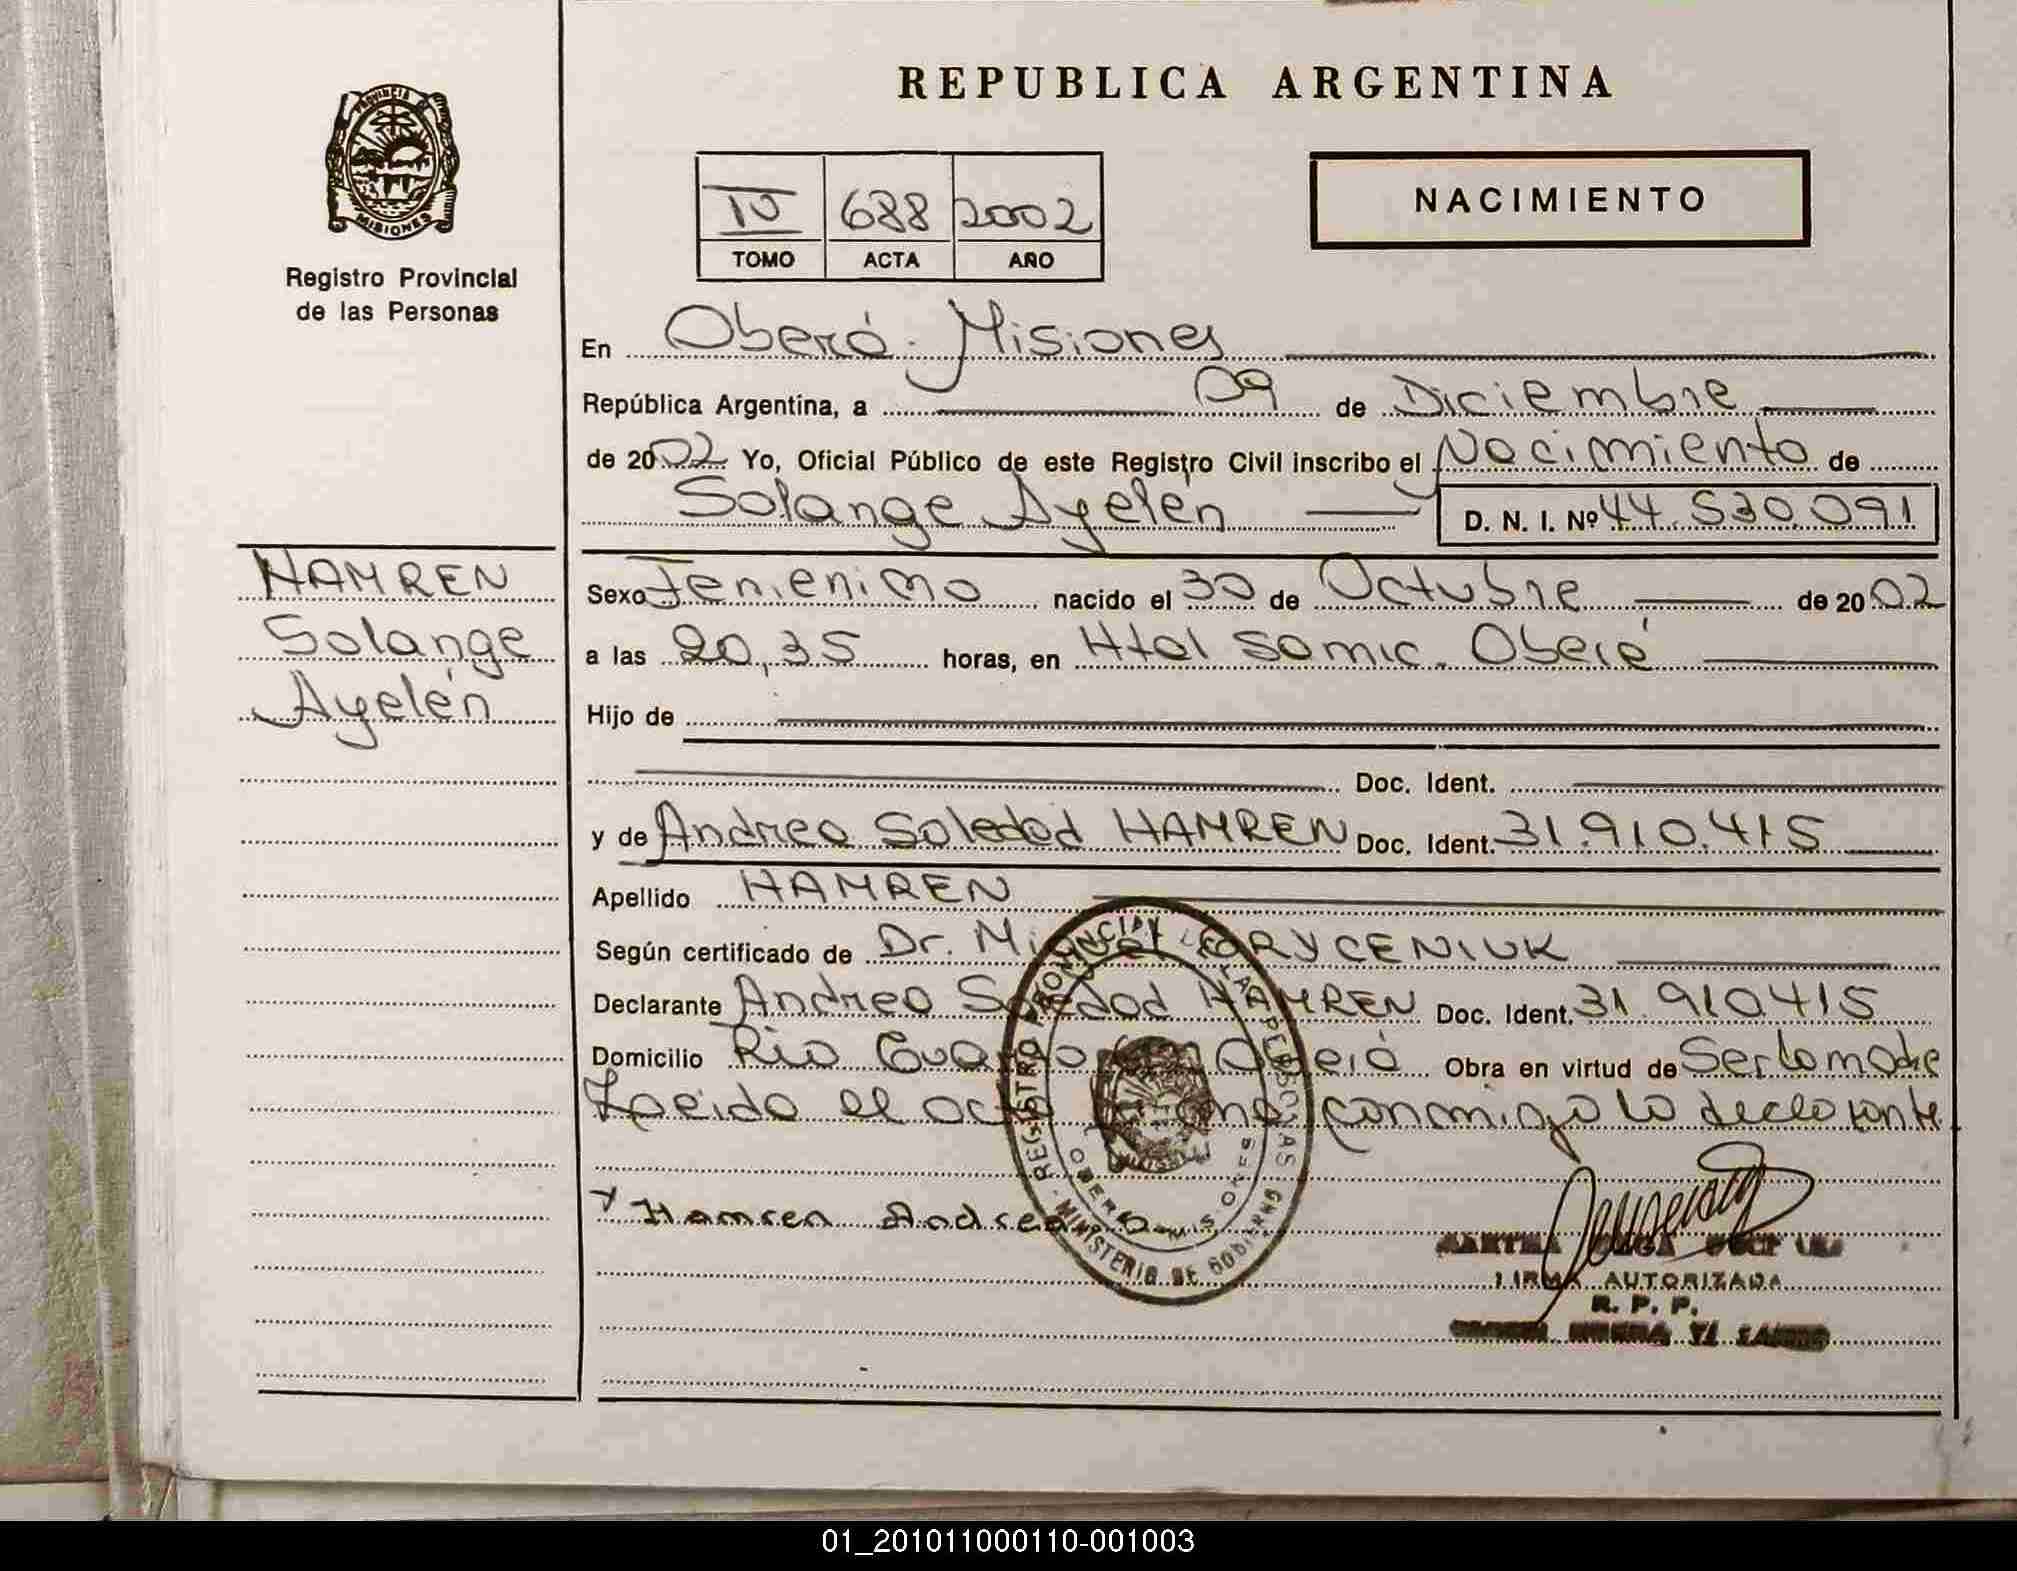 REPUBLICA ARGENTINA
PROVINCIA DE
MISIONES
Registro Provincial
de las Personas
IV 688 2002
TOMO ACTA AÑO
NACIMIENTO
En Oberá - Misiones
República Argentina, a 09 de Diciembre
de 2002 Yo, Oficial Público de este Registro Civil inscribo el Nacimiento de
Solange Ayelén D. N. I. Nº 44.530.091
HAMREN
Solange
Ayelén
Sexo Femenino nacido el 30 de Octubre de 2002
a las 20,35 horas, en Htal Samic. Oberá
Hijo de
Doc. Ident.
y de Andrea Soledad HAMREN Doc. Ident. 31.910.415
Apellido HAMREN
Según certificado de Dr. Miguel ORYCENIUK
Declarante Andrea Soledad HAMREN Doc. Ident. 31.910415
Domicilio Rio Oberá Obra en virtud de Ser la madre
Leida el acta conmigo la declarante
Hamren Andrea S
REGISTRO PROVINCIAL DE LAS PERSONAS
MINISTERIO DE GOBIERNO
OBERA MISIONES
MARTHA OLGA
FIRMA AUTORIZADA
R. P. P.
01_201011000110-001003